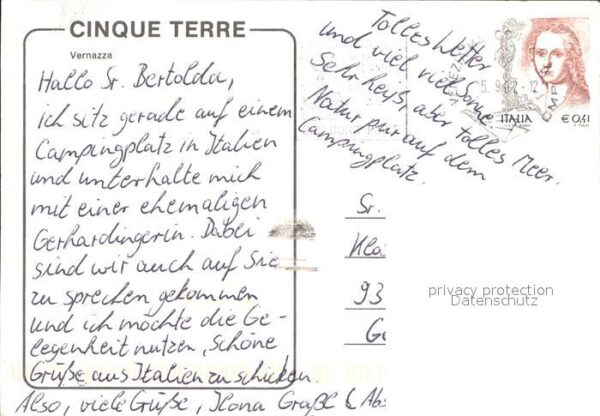 CINQUE TERRE
Vernazza
Hallo Sr. Bertolda,
ich sitz gerade auf einem
Campingplatz in Italien
und unterhalte mich
mit einer ehemaligen
Gerhardingerin. Dabei
sind wir auch auf Sie
zu sprechen gekommen
und ich möchte die Ge-
legenheit nutzen, schöne
Grüße aus Italien zu schicken.
Also, viele Grüße, Ilona Graße (Abs
Tolles Wetter
und viel viel Sonne
Sehr heiß, aber tolles Meer.
Natur pur auf dem
Campingplatz.
ITALIA € 0,41
Sr.
Kla
93
Ge
privacy protection
Datenschutz